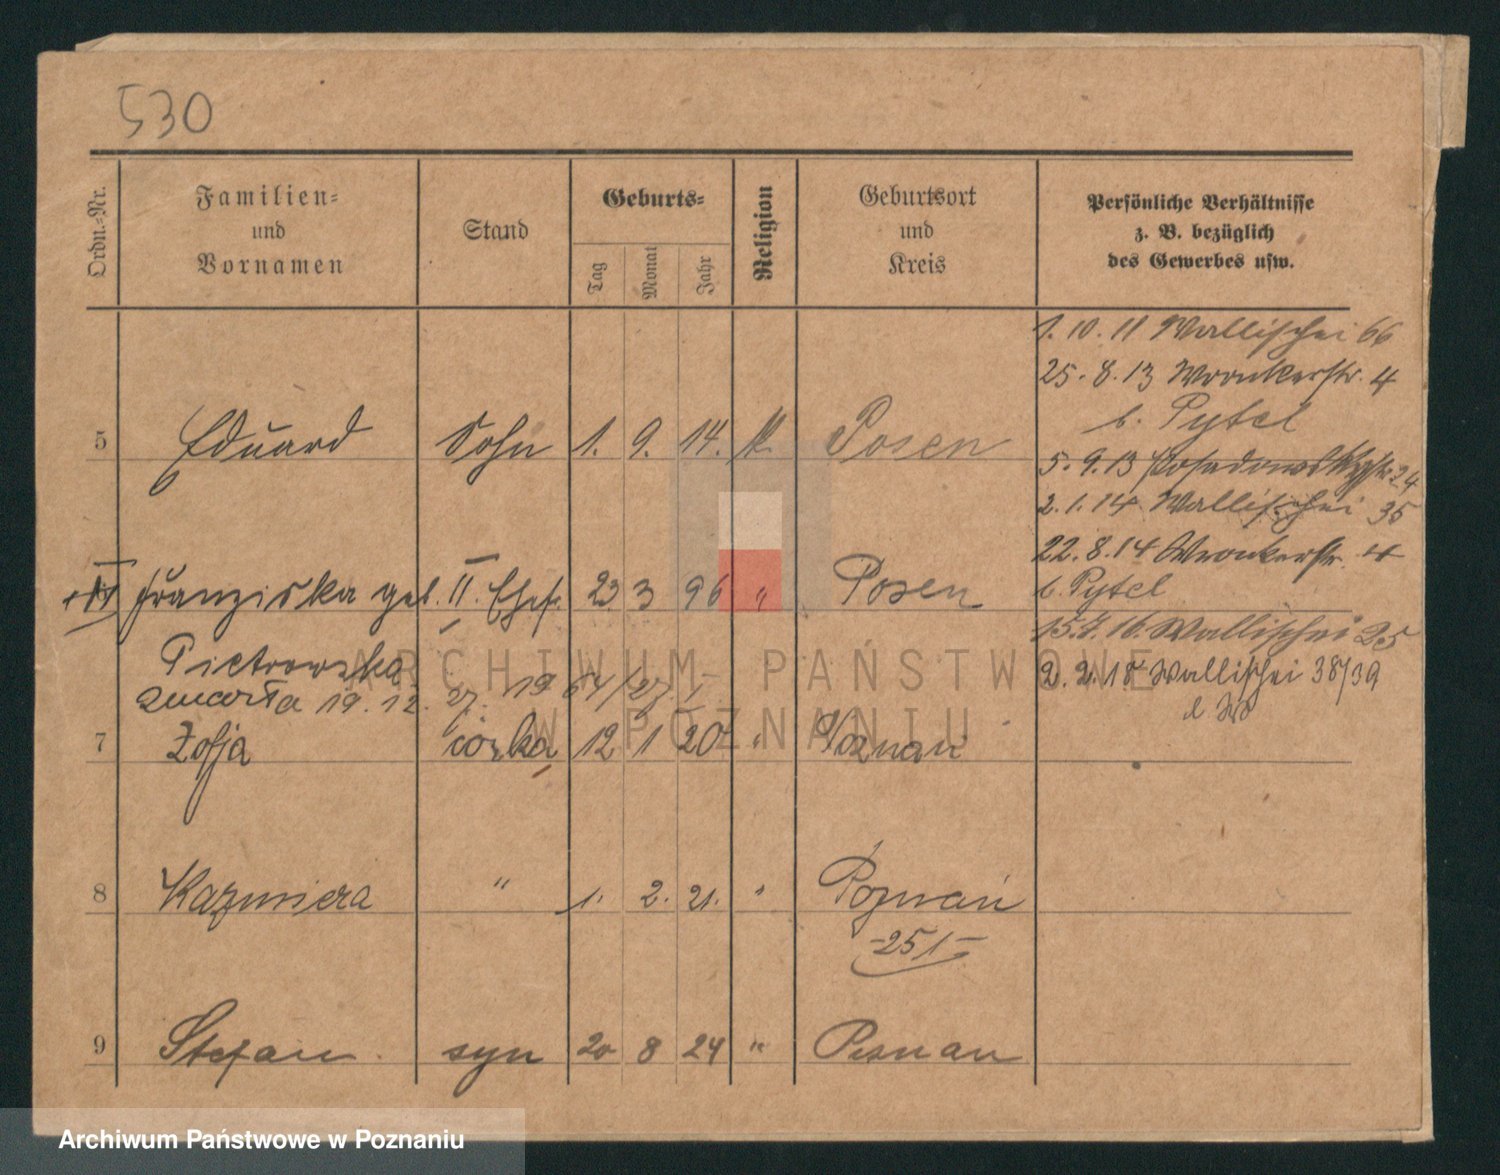 530
Ordn.-Nr.
Familien-
und
Vornamen
Stand
Geburts-
Tag
Monat
Jahr
Religion
Geburtsort
und
Kreis
Persönliche Verhältnisse
z. B. bezüglich
des Gewerbes usw.
1. 10. 11 Wallischei 66
25. 8. 13 Wronkerstr. 4
b. Pytel
5 Eduard Sohn 1. 9. 14. k. Posen
5. 9. 13 Posadowskystr. 24
2. 1. 14 Wallischei 35
22. 8. 14 Wronkerstr. 4
b. Pytel
II Franziska geb. II. Ehefr. 23 3 96 " Posen
15. 7. 16. Wallischei 25
Pietrowska
2. 2. 18 Wallischei 38/39
zmarła 19. 12. 27. 19 /27 I
7 Zofja córka 12 1 20 " Poznań
8 Kazimiera " 1. 2. 21. " Poznań
-251-
9 Stefan syn 20 8 24 " Poznan
ARCHIWUM PAŃSTWOWE
W POZNANIU
Archiwum Państwowe w Poznaniu